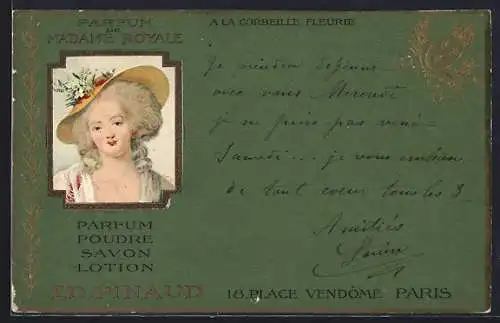 PARFUM
DE
MADAME ROYALE
A LA CORBEILLE FLEURIE
Je viendrai déjeuner
avec vous Mercredi
je ne puis pas venir
Samedi... je vous embrasse
de tout coeur tous les 3
Amitiés
PARFUM
POUDRE
SAVON
LOTION
ED. PINAUD
18. PLACE VENDÔME PARIS